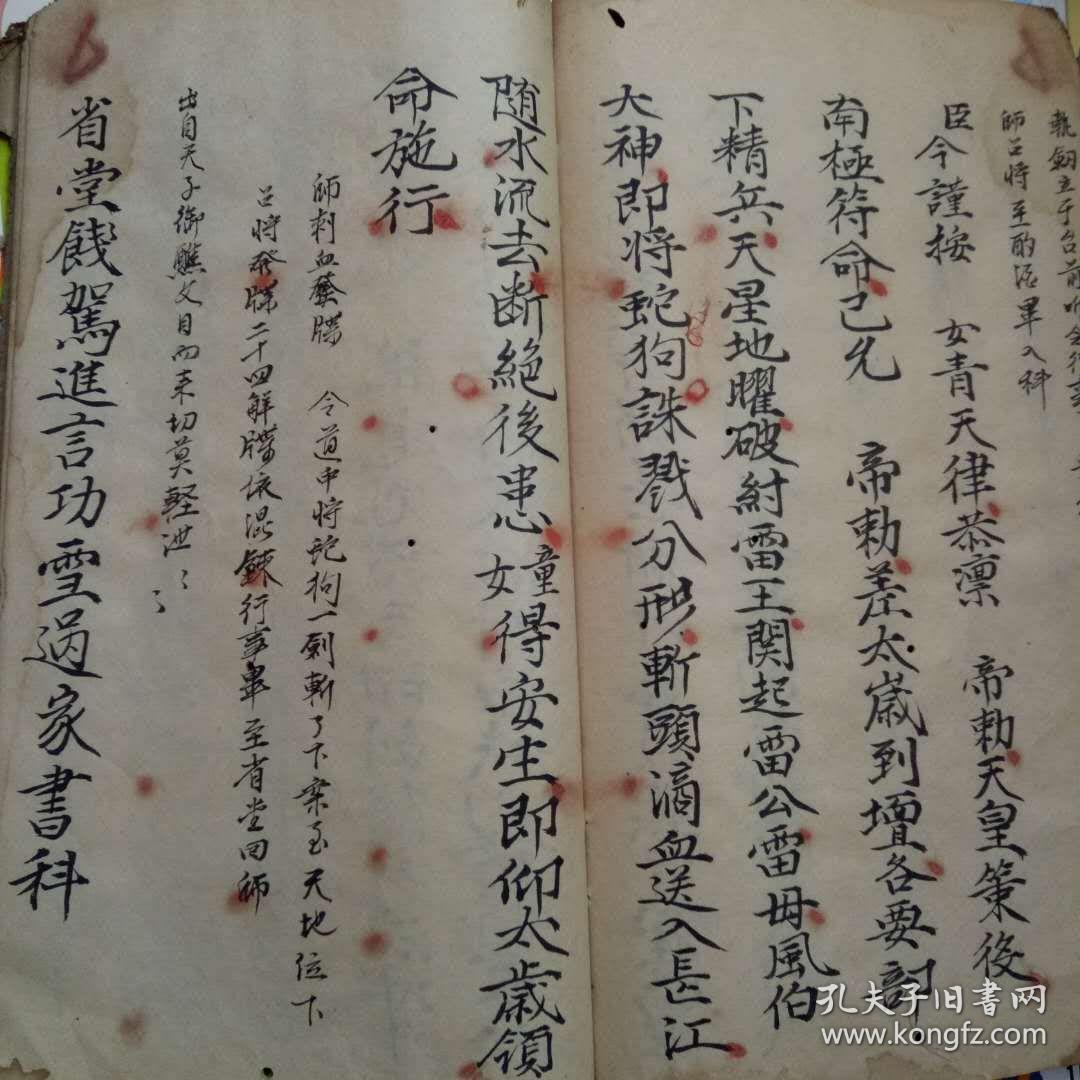 執劔立于台前听令行事
師召將至酌酒畢入科
臣今謹按 女青天律恭禀 帝勅天皇策後
南極符命已允 帝勅差太歲到壇各要討
下精兵天星地曜破紂雷王関起雷公雷母風伯
大神即将蛇狗誅戮分形斬頭滴血送入長江
随水流去断絶後患童女得安生即仰太歲領
命施行
師刺血發牒 令道中將蛇狗一劍斬了下案至天地位下
召將發牒二十四解牒依混錬行事畢至省堂回師
出自天子御醮文目而来切莫輕泄〻〻
省堂餞駕進言功雪過家書科
孔夫子旧书网
www.kongfz.com